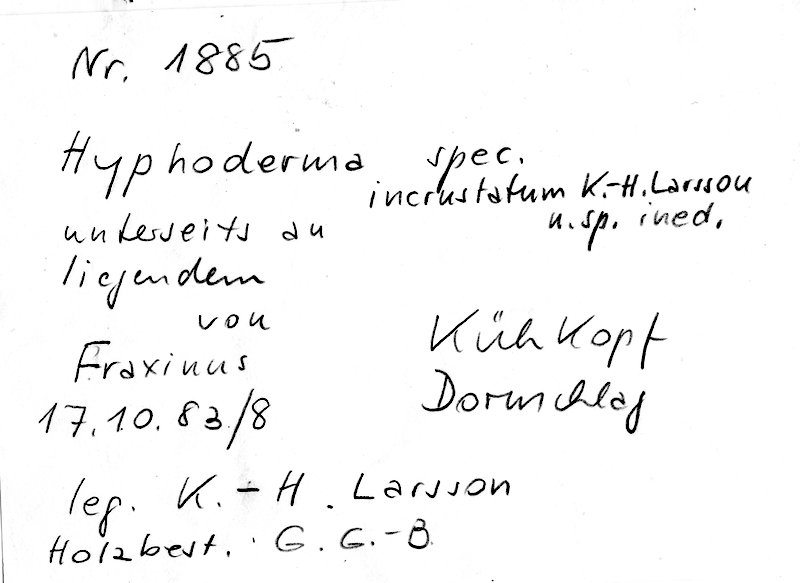 Nr. 1885
Hyphoderma spec.
incrustatum K.-H. Larsson
n.sp. ined.
unterseits an
liegendem
von
Fraxinus
17.10.83/8
Kühkopf
Dornschlag
leg. K.-H. Larsson
Holzbest. G. G.-B